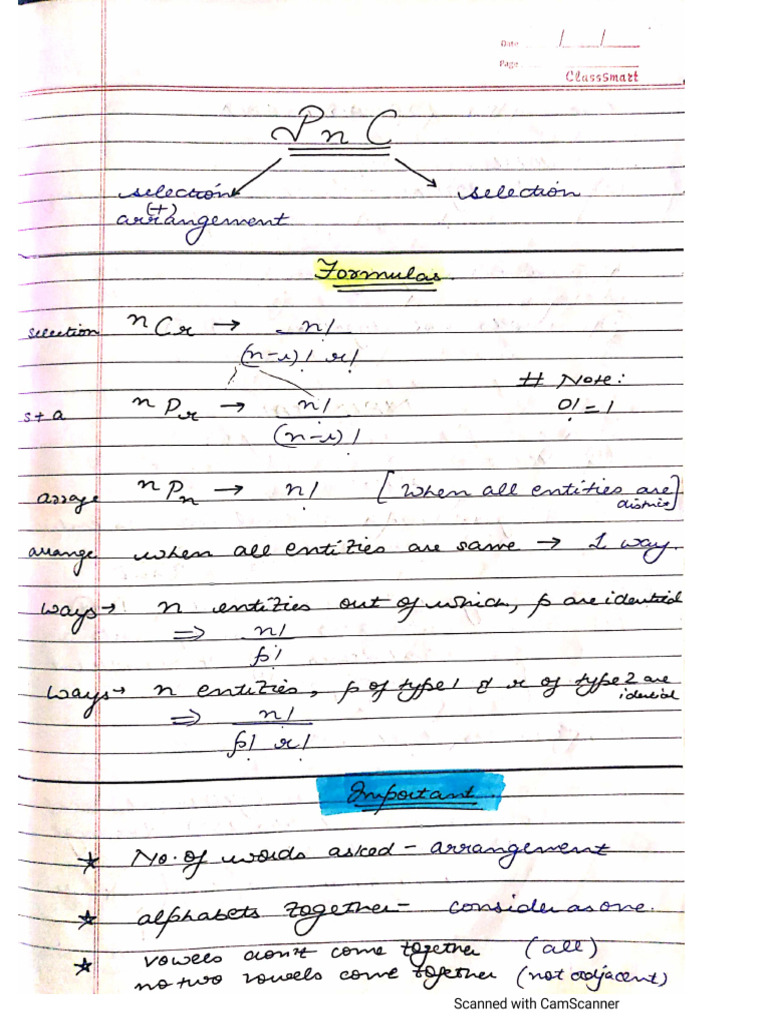 Date / /
Page
Classmart
P n C
selection selection
(+)
arrangement
Formulas
selection nCr → n!
(n-r)! r! # Note:
s+a nPr → n! 0! = 1
(n-r)!
arrage nPn → n! [When all entities are
distinct]
arrange when all entities are same → 1 way.
ways → n entities out of which, p are identical
⇒ n!
p!
ways → n entities, p of type 1 & r of type 2 are
idencial
⇒ n!
p! r!
Important
★ No. of words asked - arrangement
★ alphabets together - consider as one.
★ vowels don't come together (all)
no two vowels come together (not adjacent)
Scanned with CamScanner